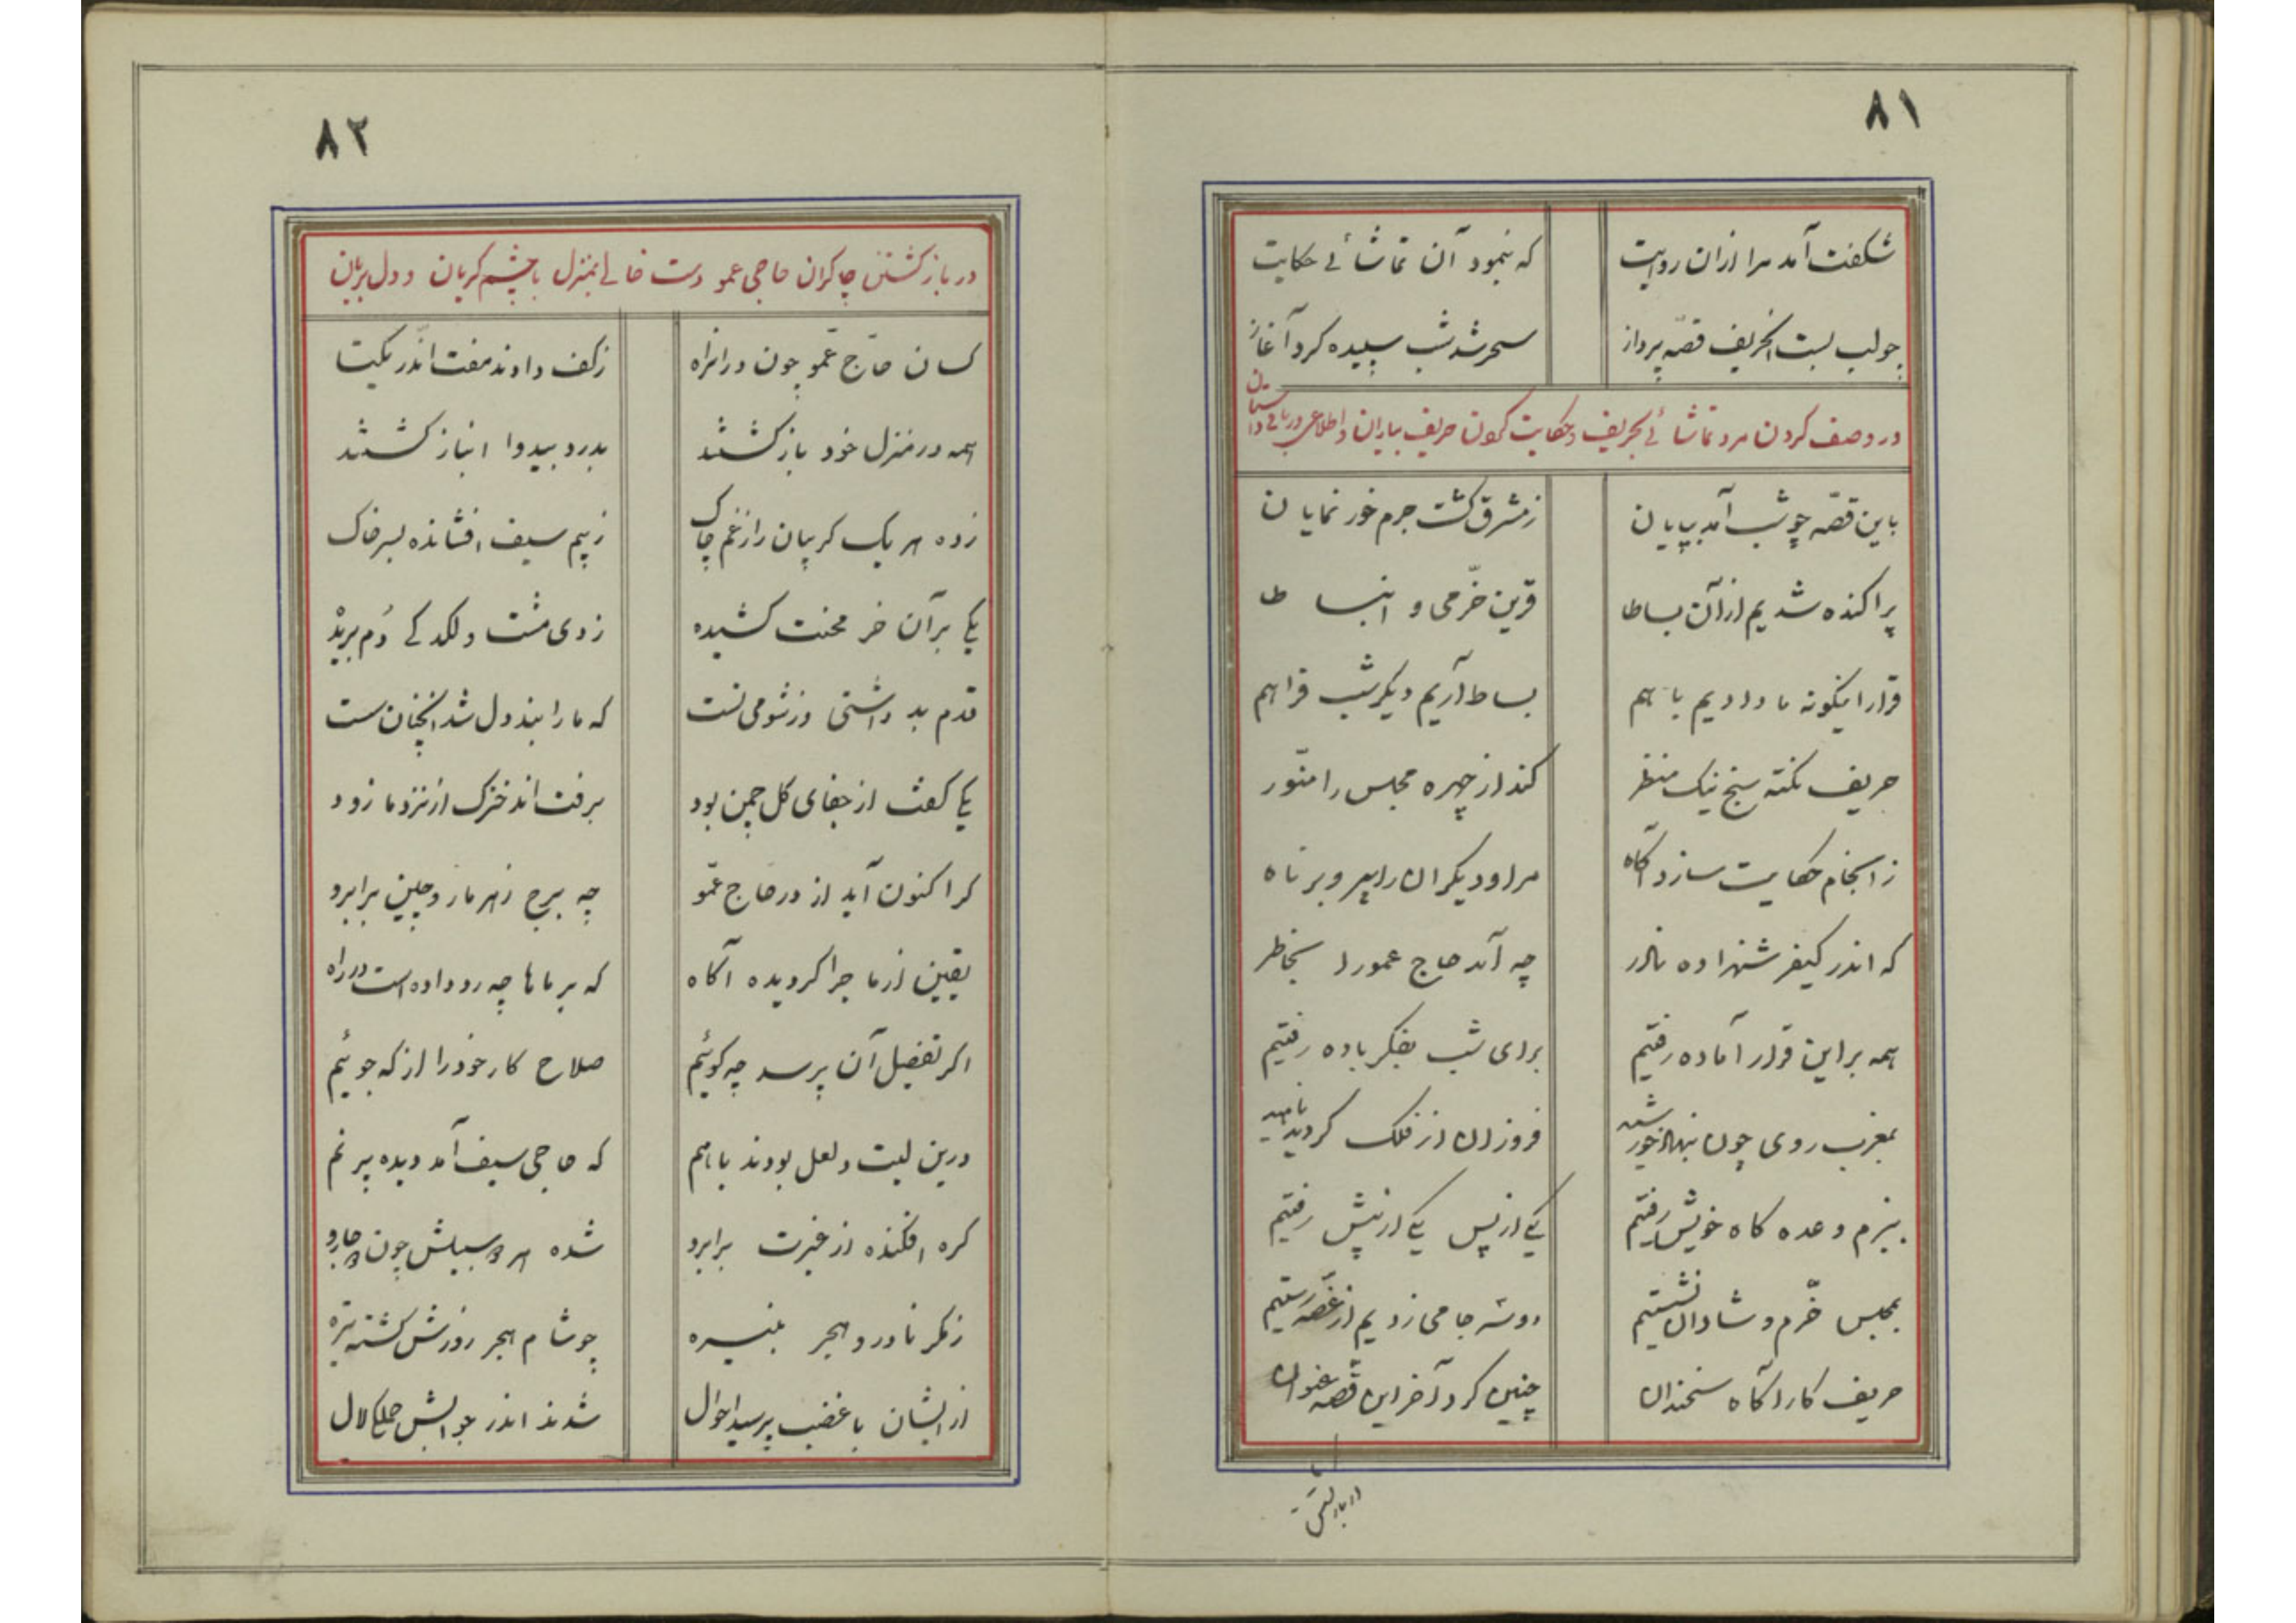 ۸۱
شکفت آمد مرا از ان روایت	که بنمود آن تماشائی حکایت
چو لب بست الحریف قصّه پرداز	سحر شد شب سپیده کرد آغاز
در وصف کردن مرد تماشائی بحریف و حکایت کردن حریف بیاران و اطلاعی در باقی داستان
باین قصّه چو شب آمد بپایان	ز مشرق کشت جرم خور نمایان
پراکنده شدیم از آن بساط	قرین خرّمی و انبساط
قرار اینکونه ما دادیم با هم	بساط آریم دیکر شب فراهم
حریف نکته سنج نیک منظر	کند از چهره مجلس را منوّر
ز انجام حکایت سازد آکاه	مرا و دیکران را پیر و برناه
که اندر کیفر شهزاده نادر	چه آمد حاج عمو را بخاطر
همه بر این قرار آماده رفتیم	برای شب بفکر باده رفتیم
بمغرب روی چون بنهاد خورشید	فروزان از فلک کردید ناهید
ببزم وعده کاه خویش رفتیم	یکی از پس یکی از پیش رفتیم
بمجلس خّرم و شادان نشستیم	دو سه جامی زدیم از غصّه رستیم
حریف کار آکاه سخندان	چنین کرد آخر این قصّه عنوان
۸۲
در باز کشتن چاکران حاجی عمو دست خالی بمنزل با چشم کریان و دل بریان
کسان حاّج عمّو چون در انراه	ز کف دادند مفت اندر
همه در منزل خود باز کشتند	بدرد بیدوا انباز کشتند
زده هر یک کریبان را ز غم چاک	ز بیم سیف افشانده بسر خاک
یکی بر آن خر محنت کشیده	زدی مشت و لکد کی دُم بریدْ
قدم بد داشتی وز شومی تست	که ما را بند دل شد انچنان سست
یکی کفت از جفای کل چمن بود	برفت اند خترک از نزد ما زود
کر اکنون آید از در حاج عمّو	چه برج زهر مار و چین بر ابرو
یقین از ماجرا کردیده آکاه	که بر ماها چه رو داده است در راه
اکر تفصیل آن پرسد چه کوئیم	صلاح کار خود را از که جوئیم
درین لیت و لعل بودند با هم	که حاجی سیف آمد دیده پر نم
کره افکنده از غیرت بر ابرو	شده هر دو سبیلش چون دو جارو
ز مکر نادر و هجر منیره	چو شام هجر روزش کشته تیره
از ایشان با غضب پرسید احوال	شدند اندر جوابش جملکی لال